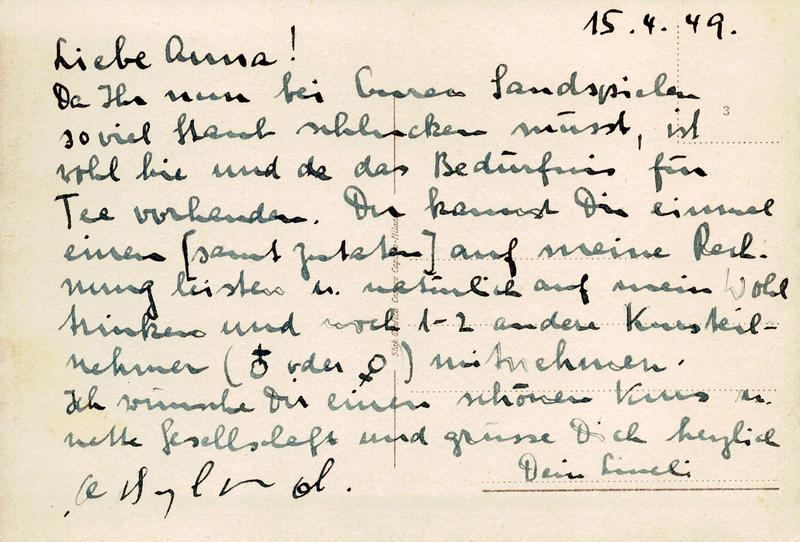 15.4.49.
Liebe Anna!
Da Ihr nun bei Euren Sandspielen
soviel Staub schlucken müsst, ist
wohl hie und da das Bedürfnis für
Tee vorhanden. Du kannst Dir einmal
einen [samt Zutaten] auf meine Rech-
nung leisten u. natürlich auf mein Wohl
trinken und noch 1-2 andere Kursteil-
nehmer (♁ oder ♀) mitnehmen.
Ich wünsche Dir einen schönen Kurs u.
nette Gesellschaft und grüsse Dich herzlich
Dein
3